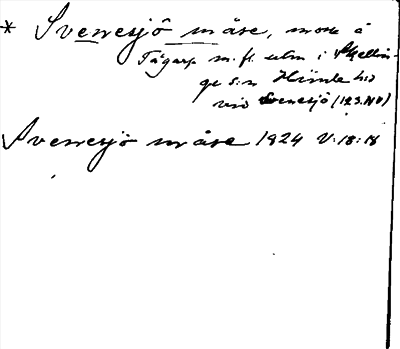 * Svenesjö måse, mosse å
Tågarp m. fl. utm i Skellin-
ge s:n Himle hd
vid Svenesjö (123.NV)
Svenesjö måse 1924 V:18:18